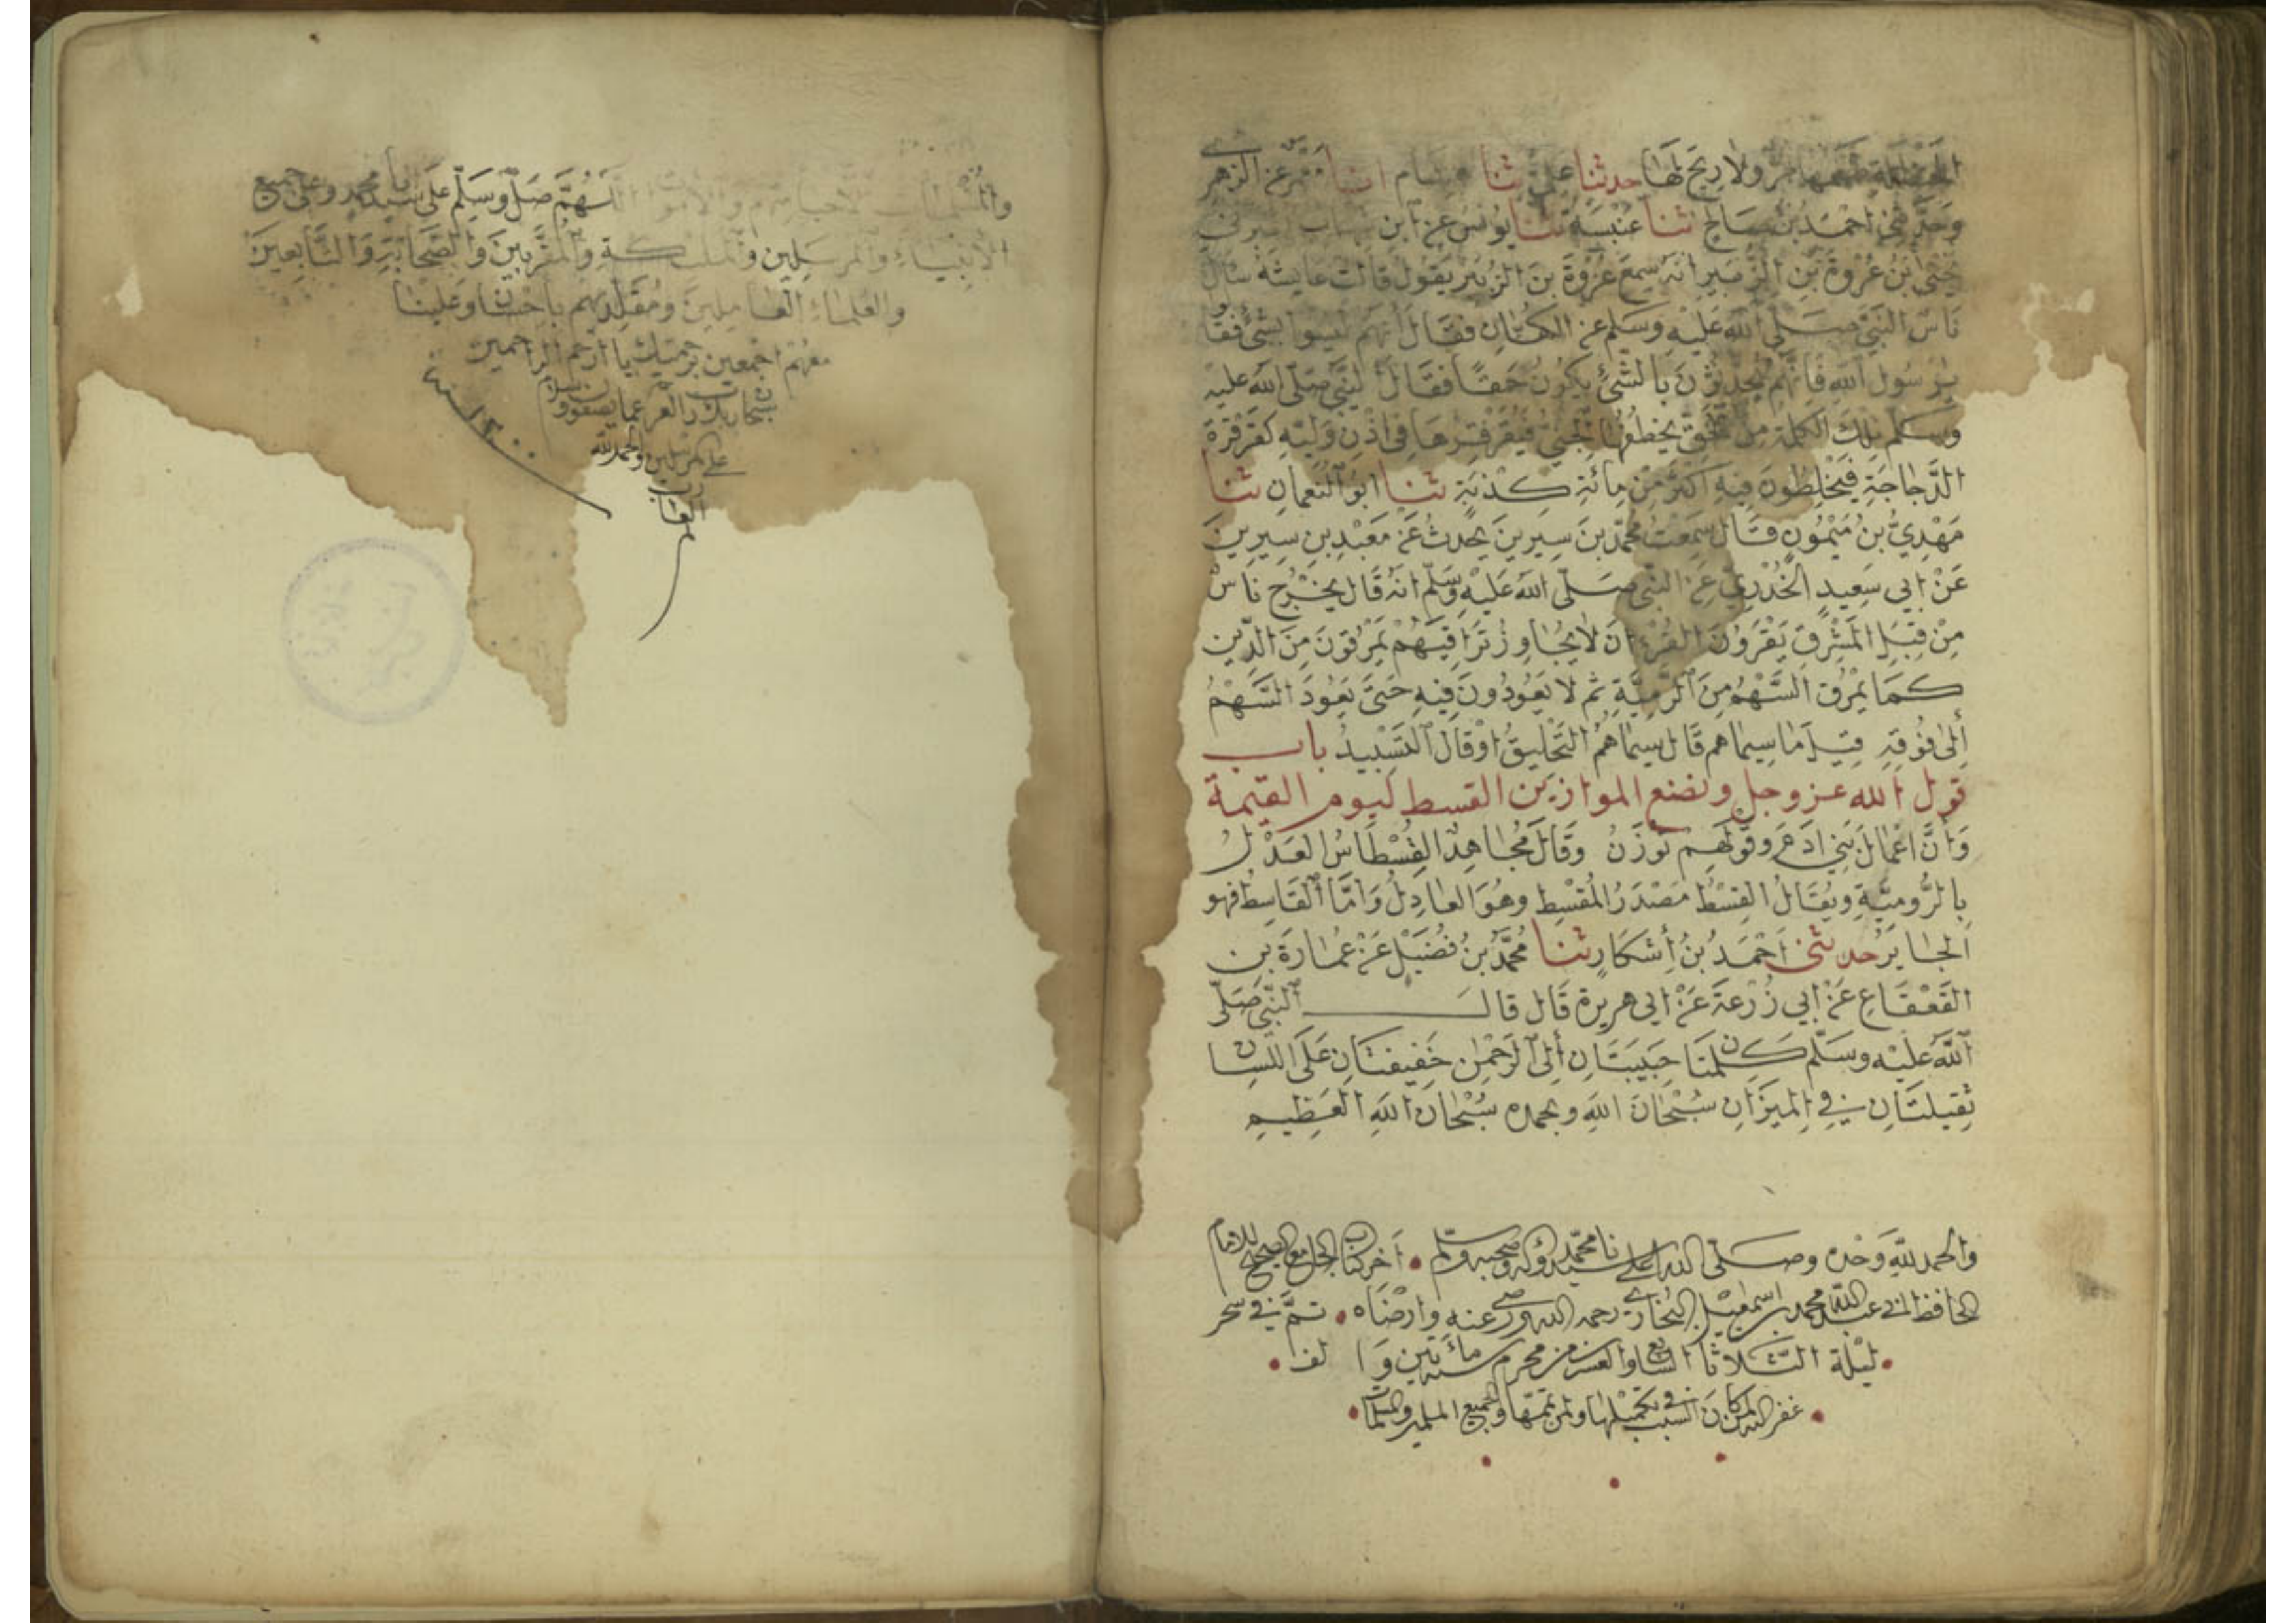 الحنظلة طعمها مر ولا ريح لها حدثنا علي ثنا هشام انا معمر عن الزهري
وحدثني احمد بن صالح ثنا عنبسة ثنا يونس عن ابن شهاب اخبرني
يحيى بن عروة بن الزبير انه سمع عروة بن الزبير يقول قالت عايشة سال
ناس النبي صلى الله عليه وسلم عن الكهان فقال انهم ليسوا بشئ فقالوا
يا رسول الله فانهم يحدثون بالشئ يكون حقا فقال النبي صلى الله عليه
وسلم تلك الكلمة من الحق يخطفها الجني فيقرقرها في اذن وليه كقرقرة
الدجاجة فيخلطون فيه اكثر من مائة كذبة ثنا ابو النعمان ثنا
مهدي بن ميمون قال سمعت محمد بن سيرين يحدث عن معبد بن سيرين
عن ابي سعيد الخدري عن النبي صلى الله عليه وسلم انه قال يخرج ناس
من قبل المشرق يقرون القرءان لا يجاوز تراقيهم يمرقون من الدين
كما يمرق السهم من الرمية ثم لا يعودون فيه حتى يعود السهم
إلى فوقه قيل ما سيماهم قال سيماهم التحليق او قال التسبيد باب
قول الله عز وجل ونضع الموازين القسط ليوم القيمة
وأن اعمال بني ادم وقولهم توزن وقال مجاهد القسطاس العدل
بالرومية ويقال القسط مصدر المقسط وهو العادل واما القاسط فهو
الجاير حدثني احمد بن إشكاب ثنا محمد بن فضيل عن عمارة بن
القعقاع عن ابي زرعة عن ابي هريرة قال قال النبي صلى
الله عليه وسلم كلمتان حبيبتان إلى الرحمن خفيفتان على اللسان
ثقيلتان في الميزان سبحان الله وبحمده سبحان الله العظيم
والحمد لله وحده وصلى الله على سيدنا محمد وآله وصحبه وسلم • آخر كتاب الجامع الصحيح للامام
الحافظ ابي عبد الله محمد بن اسمعيل البخاري رحمه الله ورضي عنه وارضاه • تم في سحر
• ليلة الثلاثا السابع والعشرين من محرم سنة مائتين والف •
• غفر الله لمن كان السبب في تكميلها ولمن تممها ولجميع المسلمين والمسلمات •
والمسلمات الاحياء منهم والاموات اللهم صل وسلم على سيدنا محمد وعلى جميع
الانبياء والمرسلين والملئكة والمقربين والصحابة والتابعين
والعلماء العاملين ومقلديهم باحسان وعلينا
معهم اجمعين برحمتك يا ارحم الراحمين
سبحان ربك رب العزة عما يصفون وسلام
على المرسلين والحمد لله
رب
العالمين
سنة ١٢٠٠